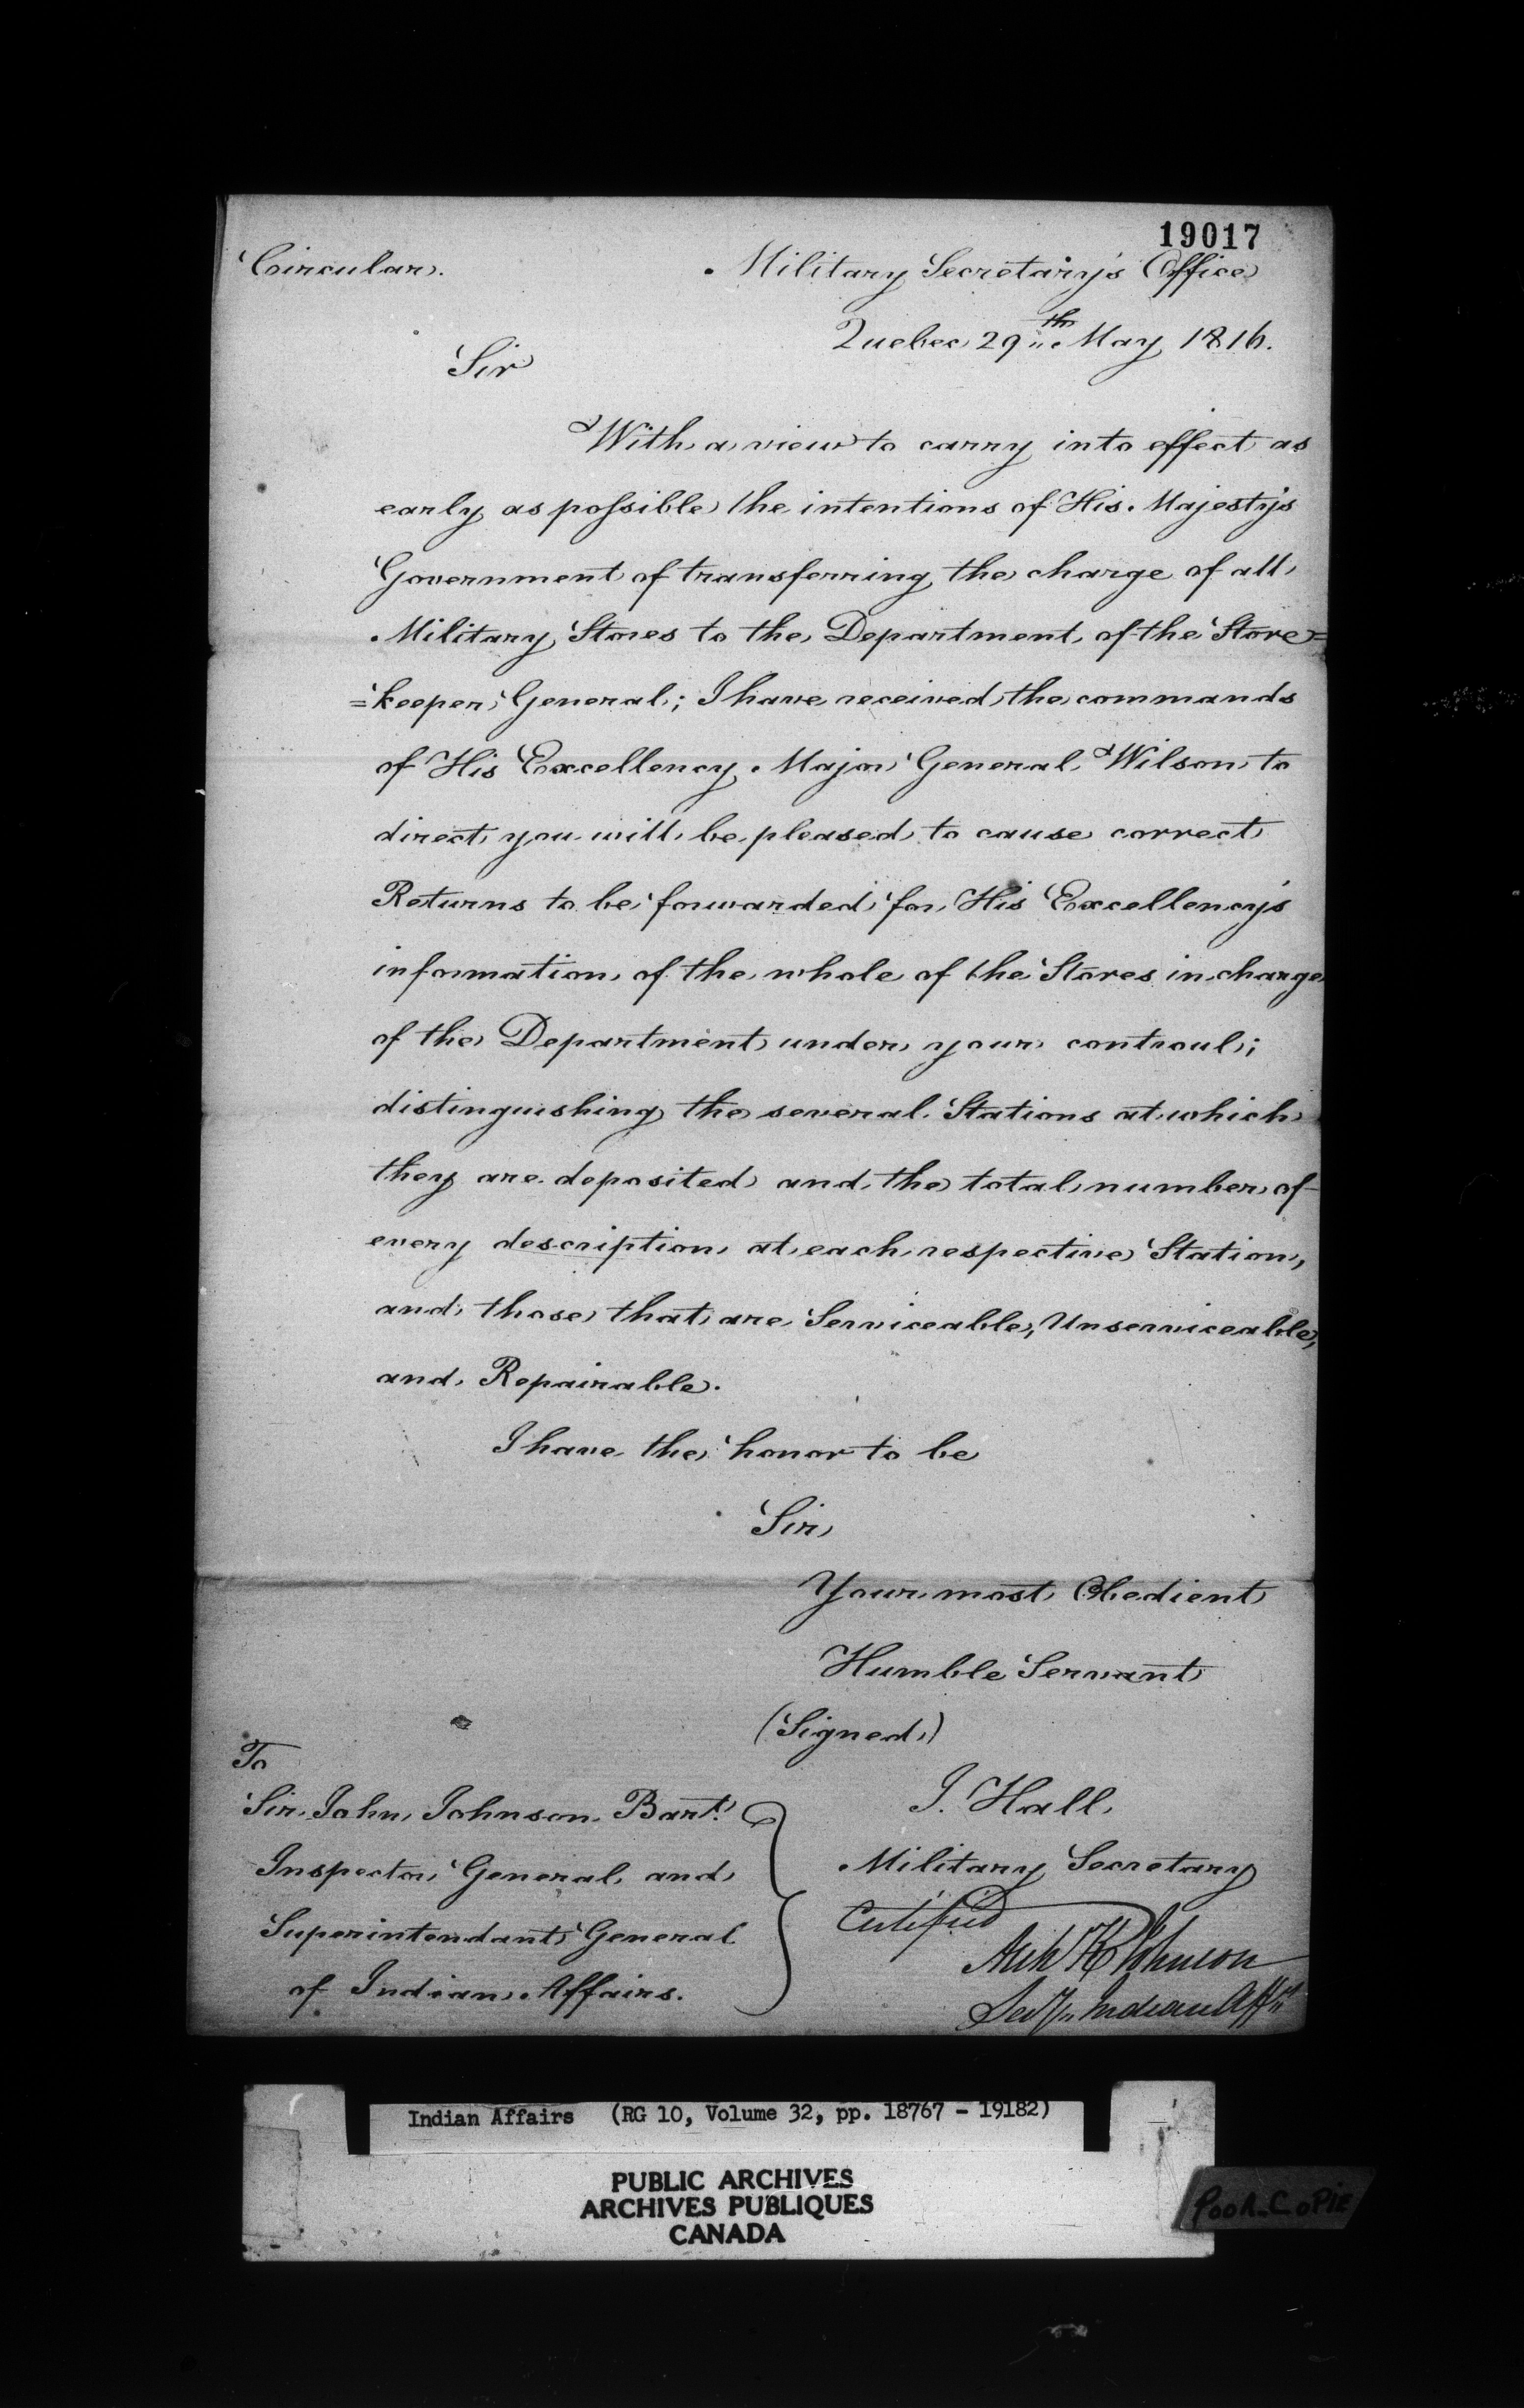 19017
Circular.
Military Secretary's Office
Quebec 29th May 1816.
Sir
With a view to carry into effect as
early as possible the intentions of His Majesty's
Government of transferring the charge of all
Military Stores to the Department of the Store=
=keeper General; I have received the commands
of His Excellency Major General Wilson to
direct you will be pleased to cause correct
Returns to be forwarded for His Excellency's
information of the whole of the Stores in charge
of the Department under your controul;
distinguishing the several Stations at which
they are deposited and the total number of
every description at each respective Station,
and those that are Serviceable, Unserviceable,
and Repairable.
I have the honor to be
Sir
Your most Obedient
Humble Servant
(Signed)
J. Hall
Military Secretary
To
Sir John Johnson Bart.
Inspector General and
Superintendant General
of Indian Affairs.
Certified
Johnson
Secy. Indian Affrs
Indian Affairs (RG 10, Volume 32, pp. 18767 - 19182)
PUBLIC ARCHIVES
ARCHIVES PUBLIQUES
CANADA
POOR COPIE